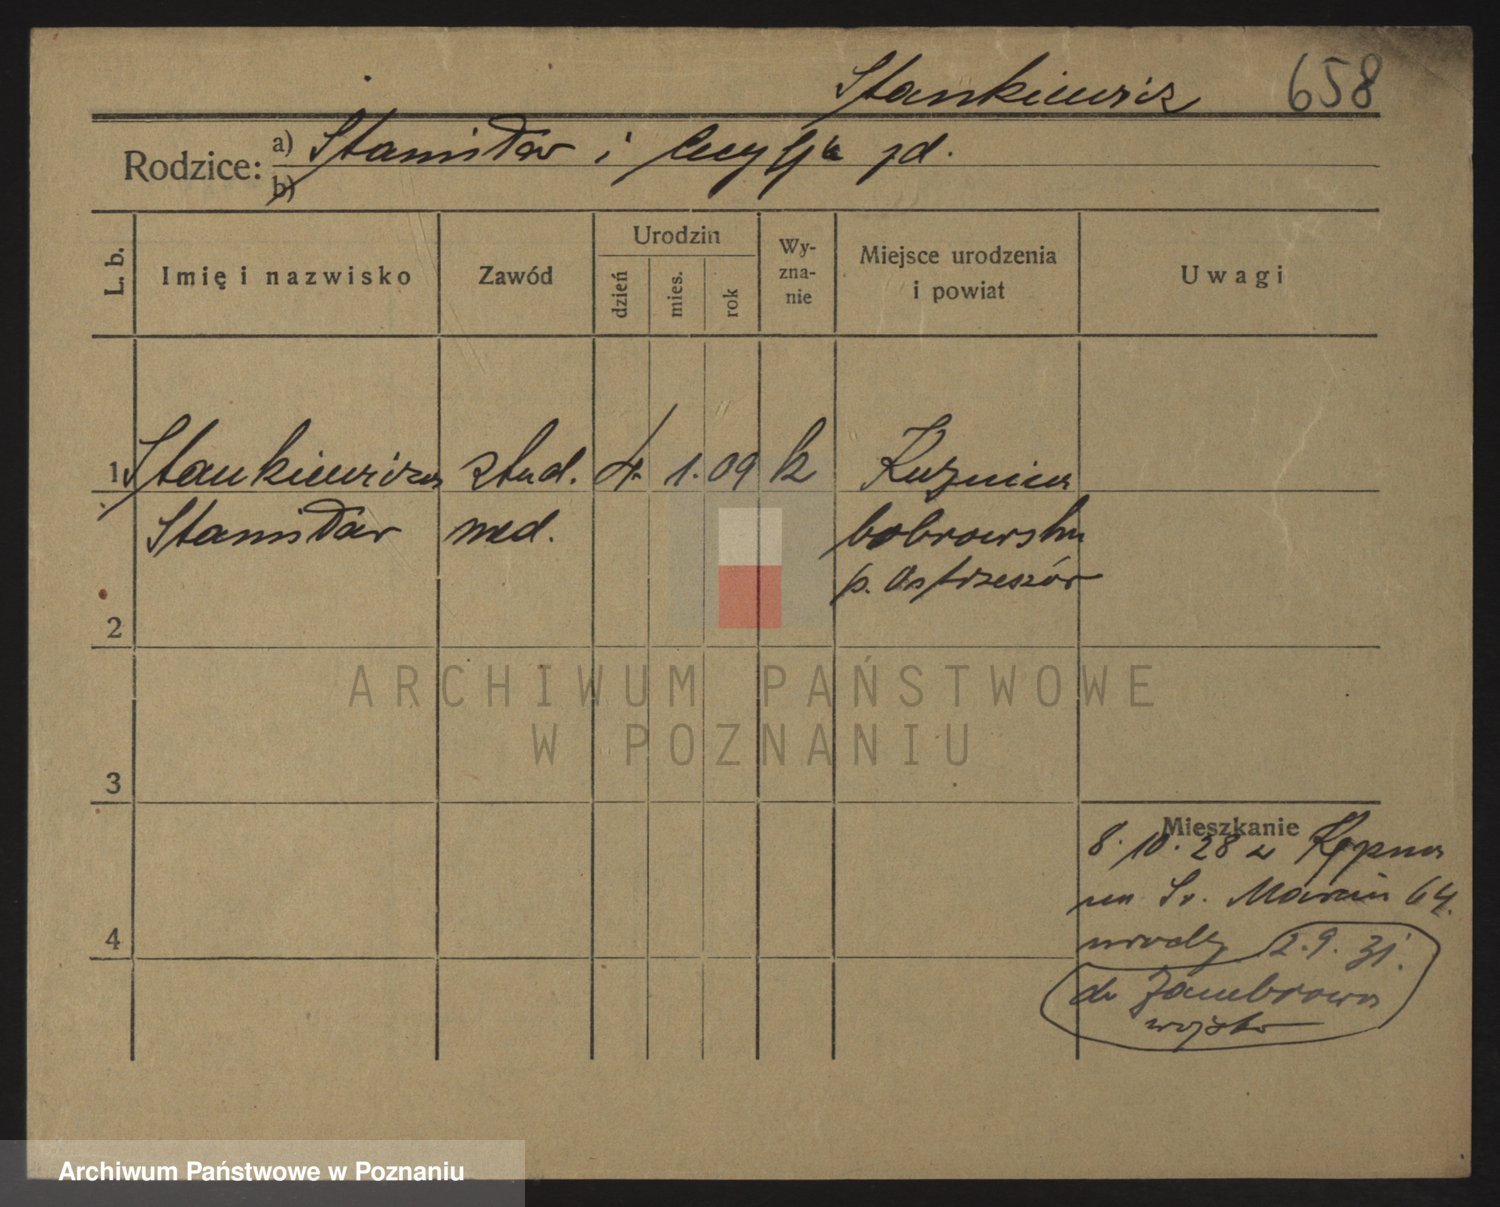 Stankiewicz 658
Rodzice: a) Stanisław i Cecylja zd.
b)
L. b. Imię i nazwisko Zawód Urodzin dzień mies. rok Wy-zna-nie Miejsce urodzenia i powiat Uwagi
1 Stankiewicz stud. 4. 1. 09 k Kuźnica
Stanisław med. bobrowska
p. Ostrzeszów
2
3
Mieszkanie
8.10.28 z Kępna
na Św. Marcin 64.
4
2.9.31.
do Zambrowa
wojsko
ARCHIWUM PAŃSTWOWE
W POZNANIU
Archiwum Państwowe w Poznaniu